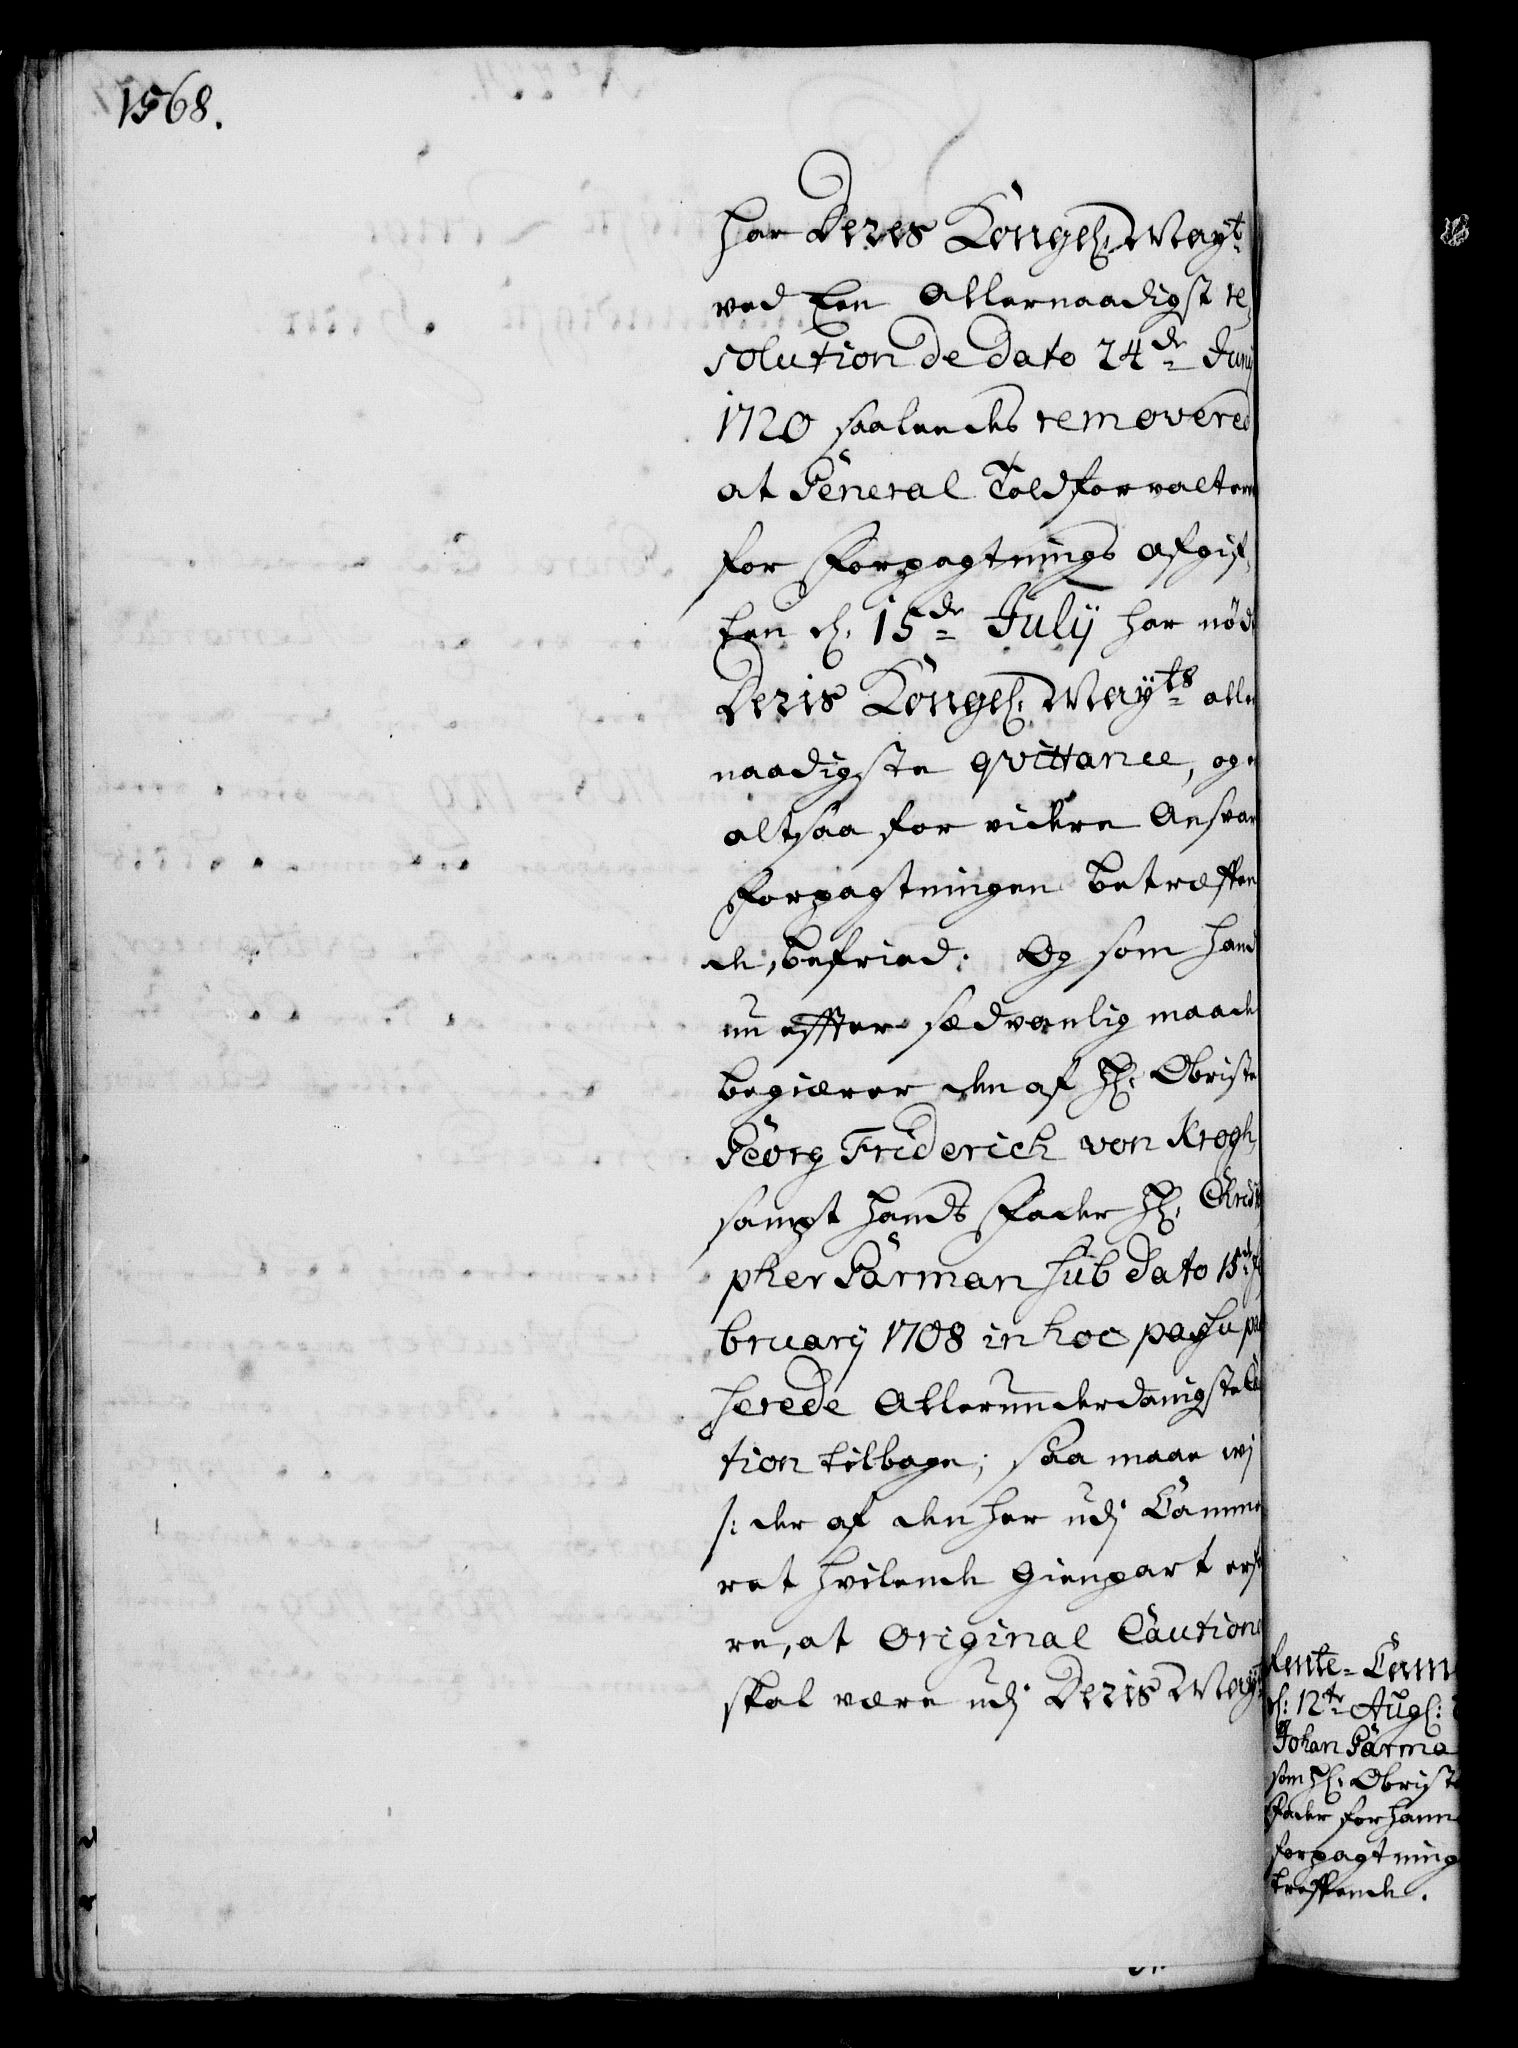 1568.
har Deres Kongel: May.t
ved Een Allernaadigst re,
solution de dato 24.de Junÿ
1720 saaledes removered
at General Toldforvalteren
for Forpagtnings Afgif,
ten d. 15.de Julÿ har nødt
Deris Kongel: Mayts aller
naadigste qvittance, og er
altsaa for videre Ansvar
Forpagtningen betræffen
de, befried. Og som hand
nu effter sædvanlig maade
begiærer den af Hr. Obriste
Georg Friderich von Krogh
sampt hands Fader Hr. Christo
pher Garman sub dato 15.de Fe
bruarÿ 1708 in hoc passu pas
serede Allerunderdanigste Cau
tion tilbage; saa maae wj
/: der af den her udj Camme
ret hvilende Gienpart erfa
re, at Original Cautionen
skal være udj Deris Mayts
Rente-Cam
d: 12.te Aug:
Johan Garma
som Hr. Obriste
Fader for hann
forpagtning
treffende.